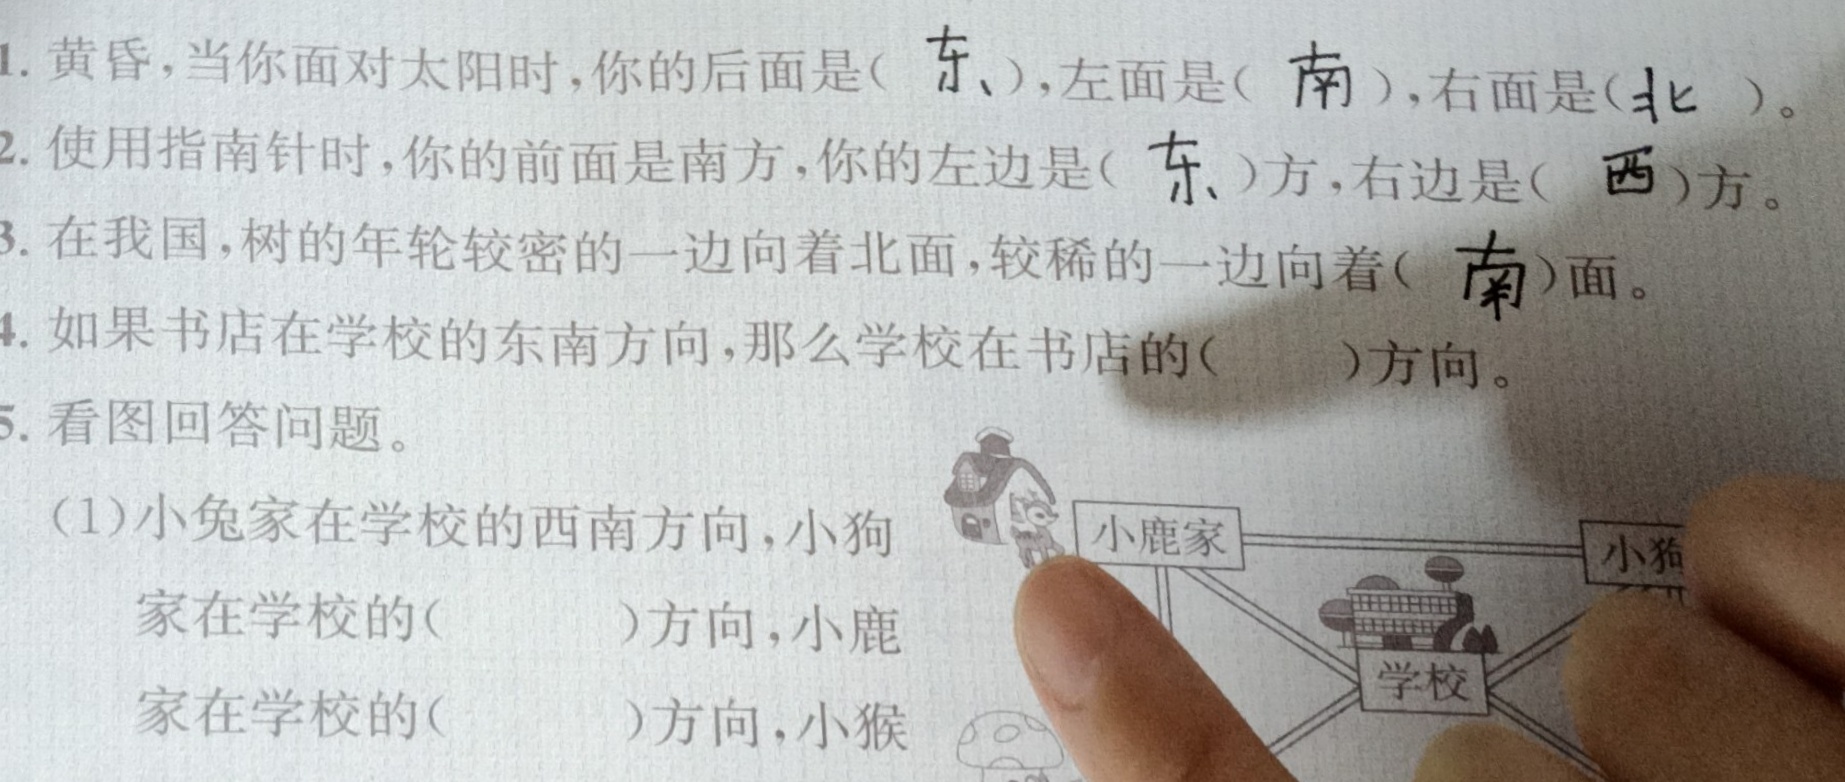 1. 黄昏,当你面对太阳时,你的后面是( 东 ),左面是( 南 ),右面是( 北 )。
2. 使用指南针时,你的前面是南方,你的左边是( 东 )方,右边是( 西 )方。
3. 在我国,树的年轮较密的一边向着北面,较稀的一边向着( 南 )面。
4. 如果书店在学校的东南方向,那么学校在书店的( )方向。
5. 看图回答问题。
(1)小兔家在学校的西南方向,小狗
家在学校的( )方向,小鹿
家在学校的( )方向,小猴
小鹿家
小狗
学校